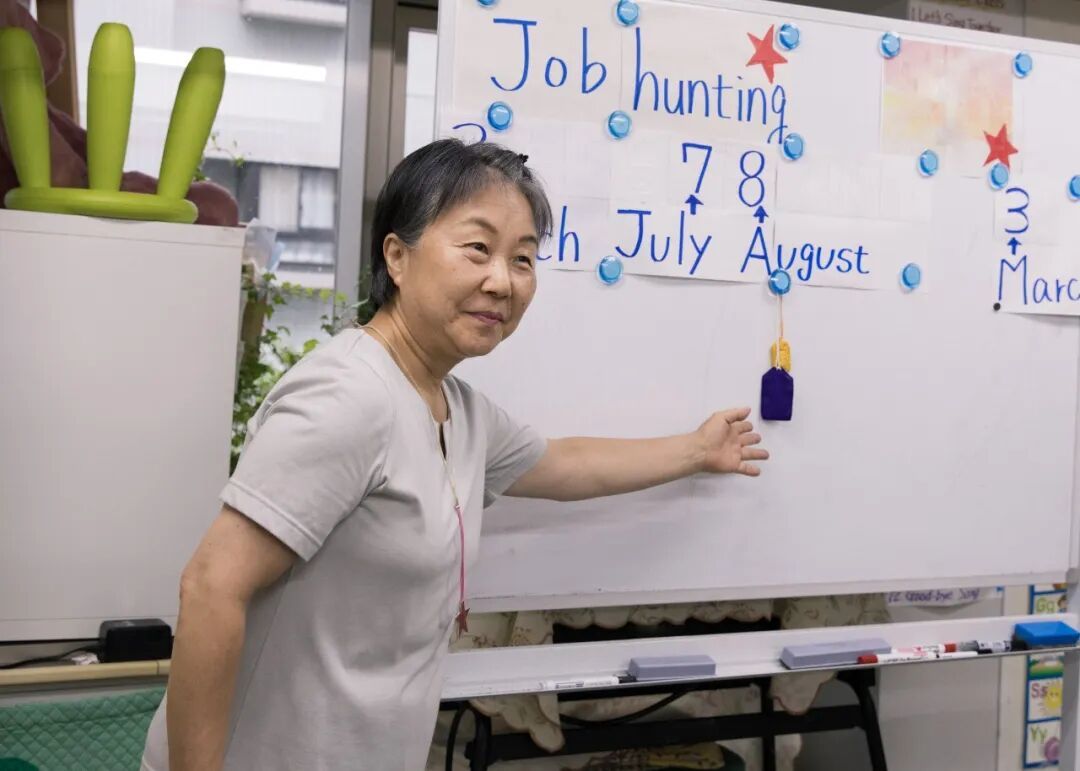 Let's Sing Together
Job hunting
3 7 8 3
ch July August Marc
12 Good-bye Song
Ss
Yy